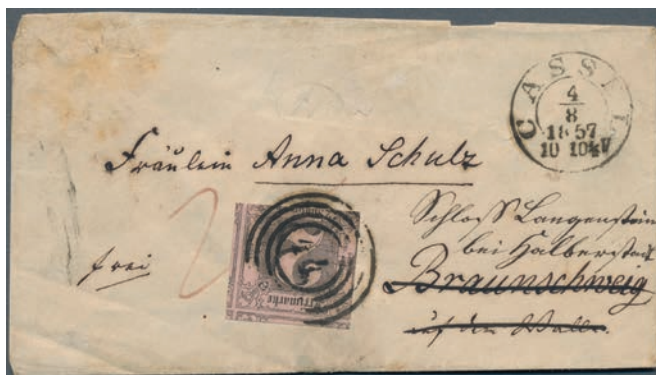 CASSEL
4
8
1857
10 10¾ V
Fräulein Anna Schulz
frei
2
Schloss Langenstein
bei Halberstadt
Braunschweig
auf dem Walle.
Freimarke